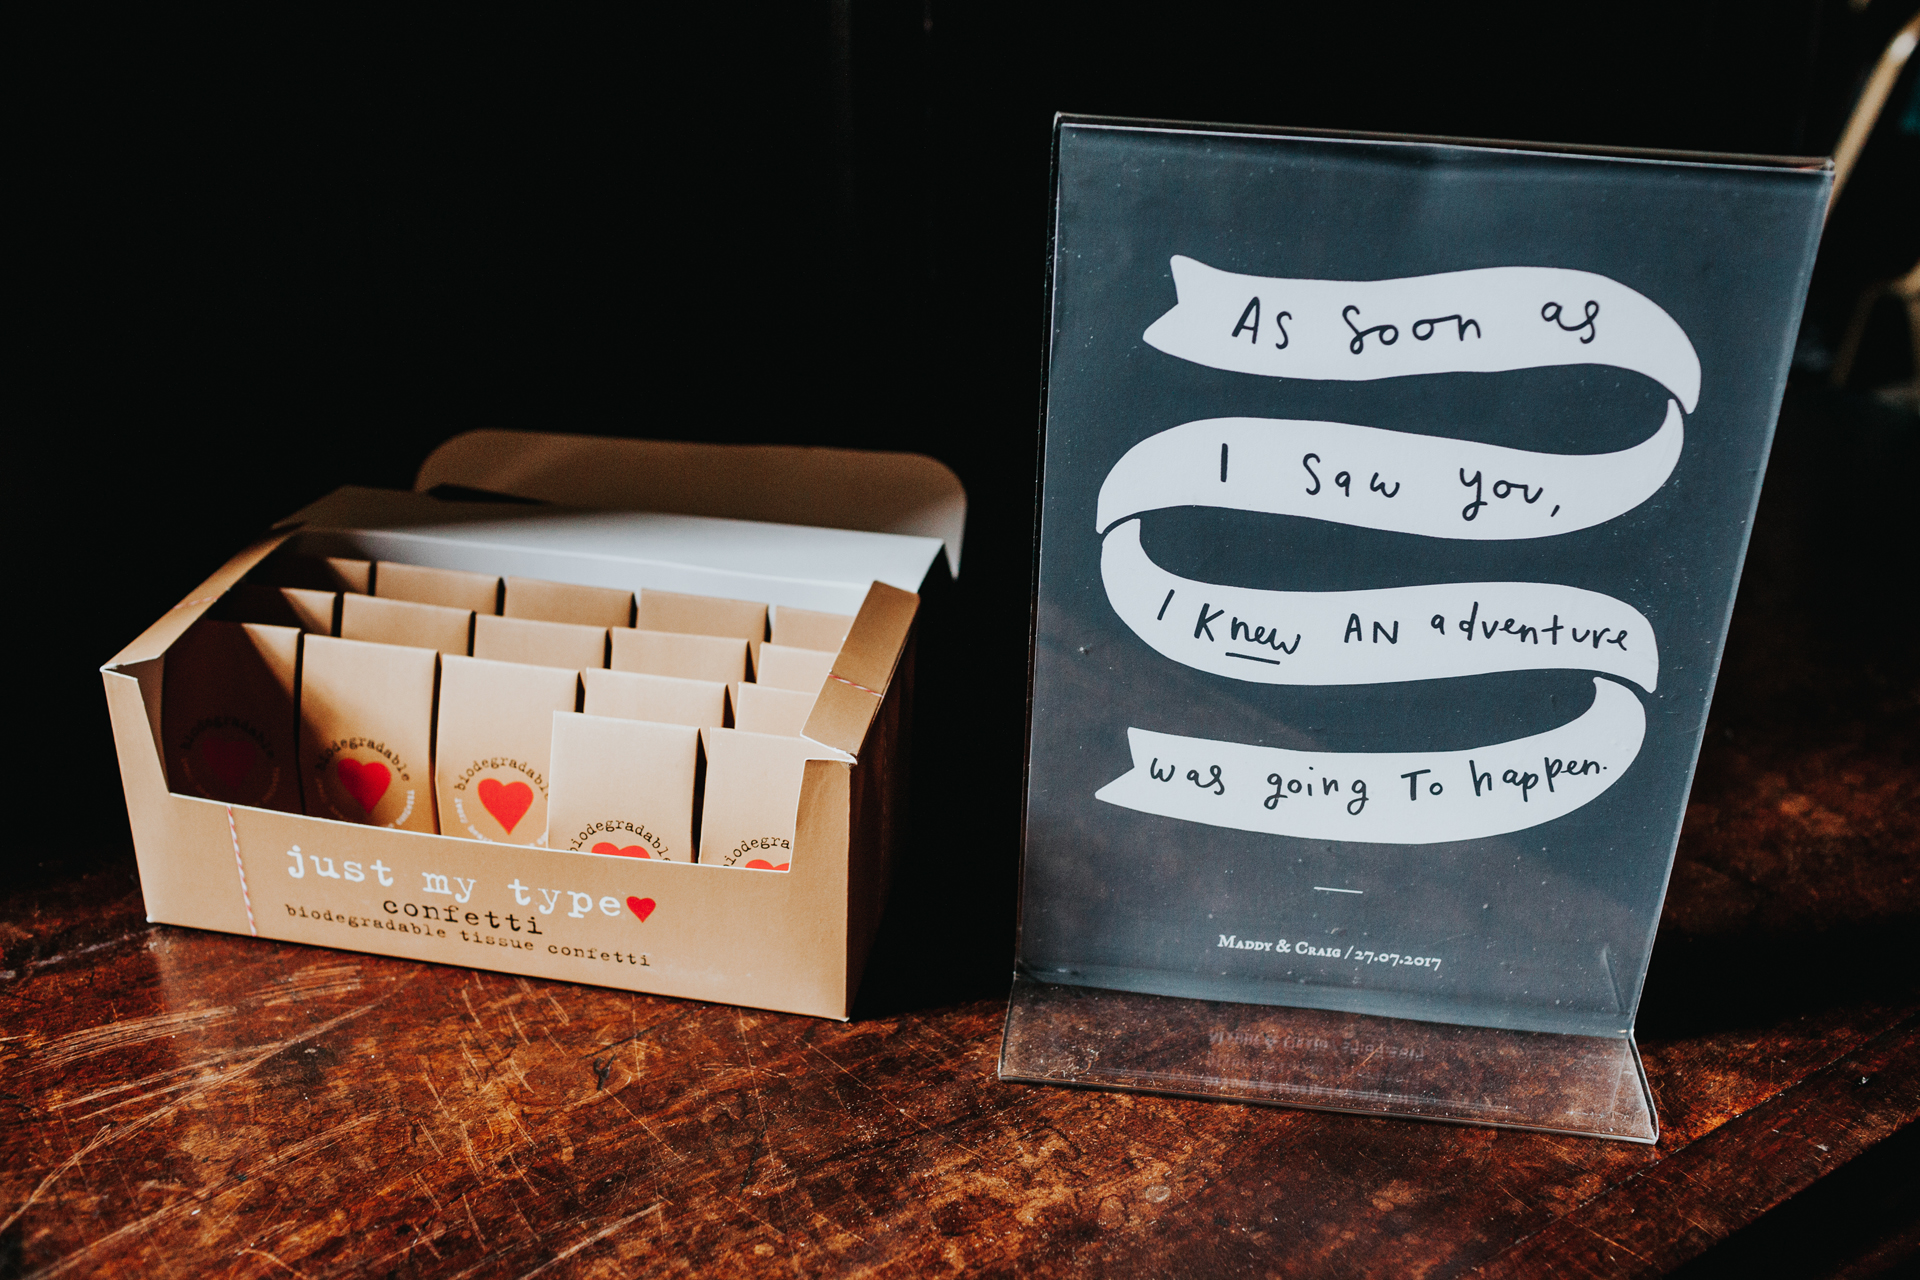 As soon as
I saw you,
I Knew AN adventure
was going To happen.
Maddy & Craig / 27.07.2017
just my type
confetti
biodegradable tissue confetti
biodegradable
biodegradable
biodegradable
biodegradable
biodegra